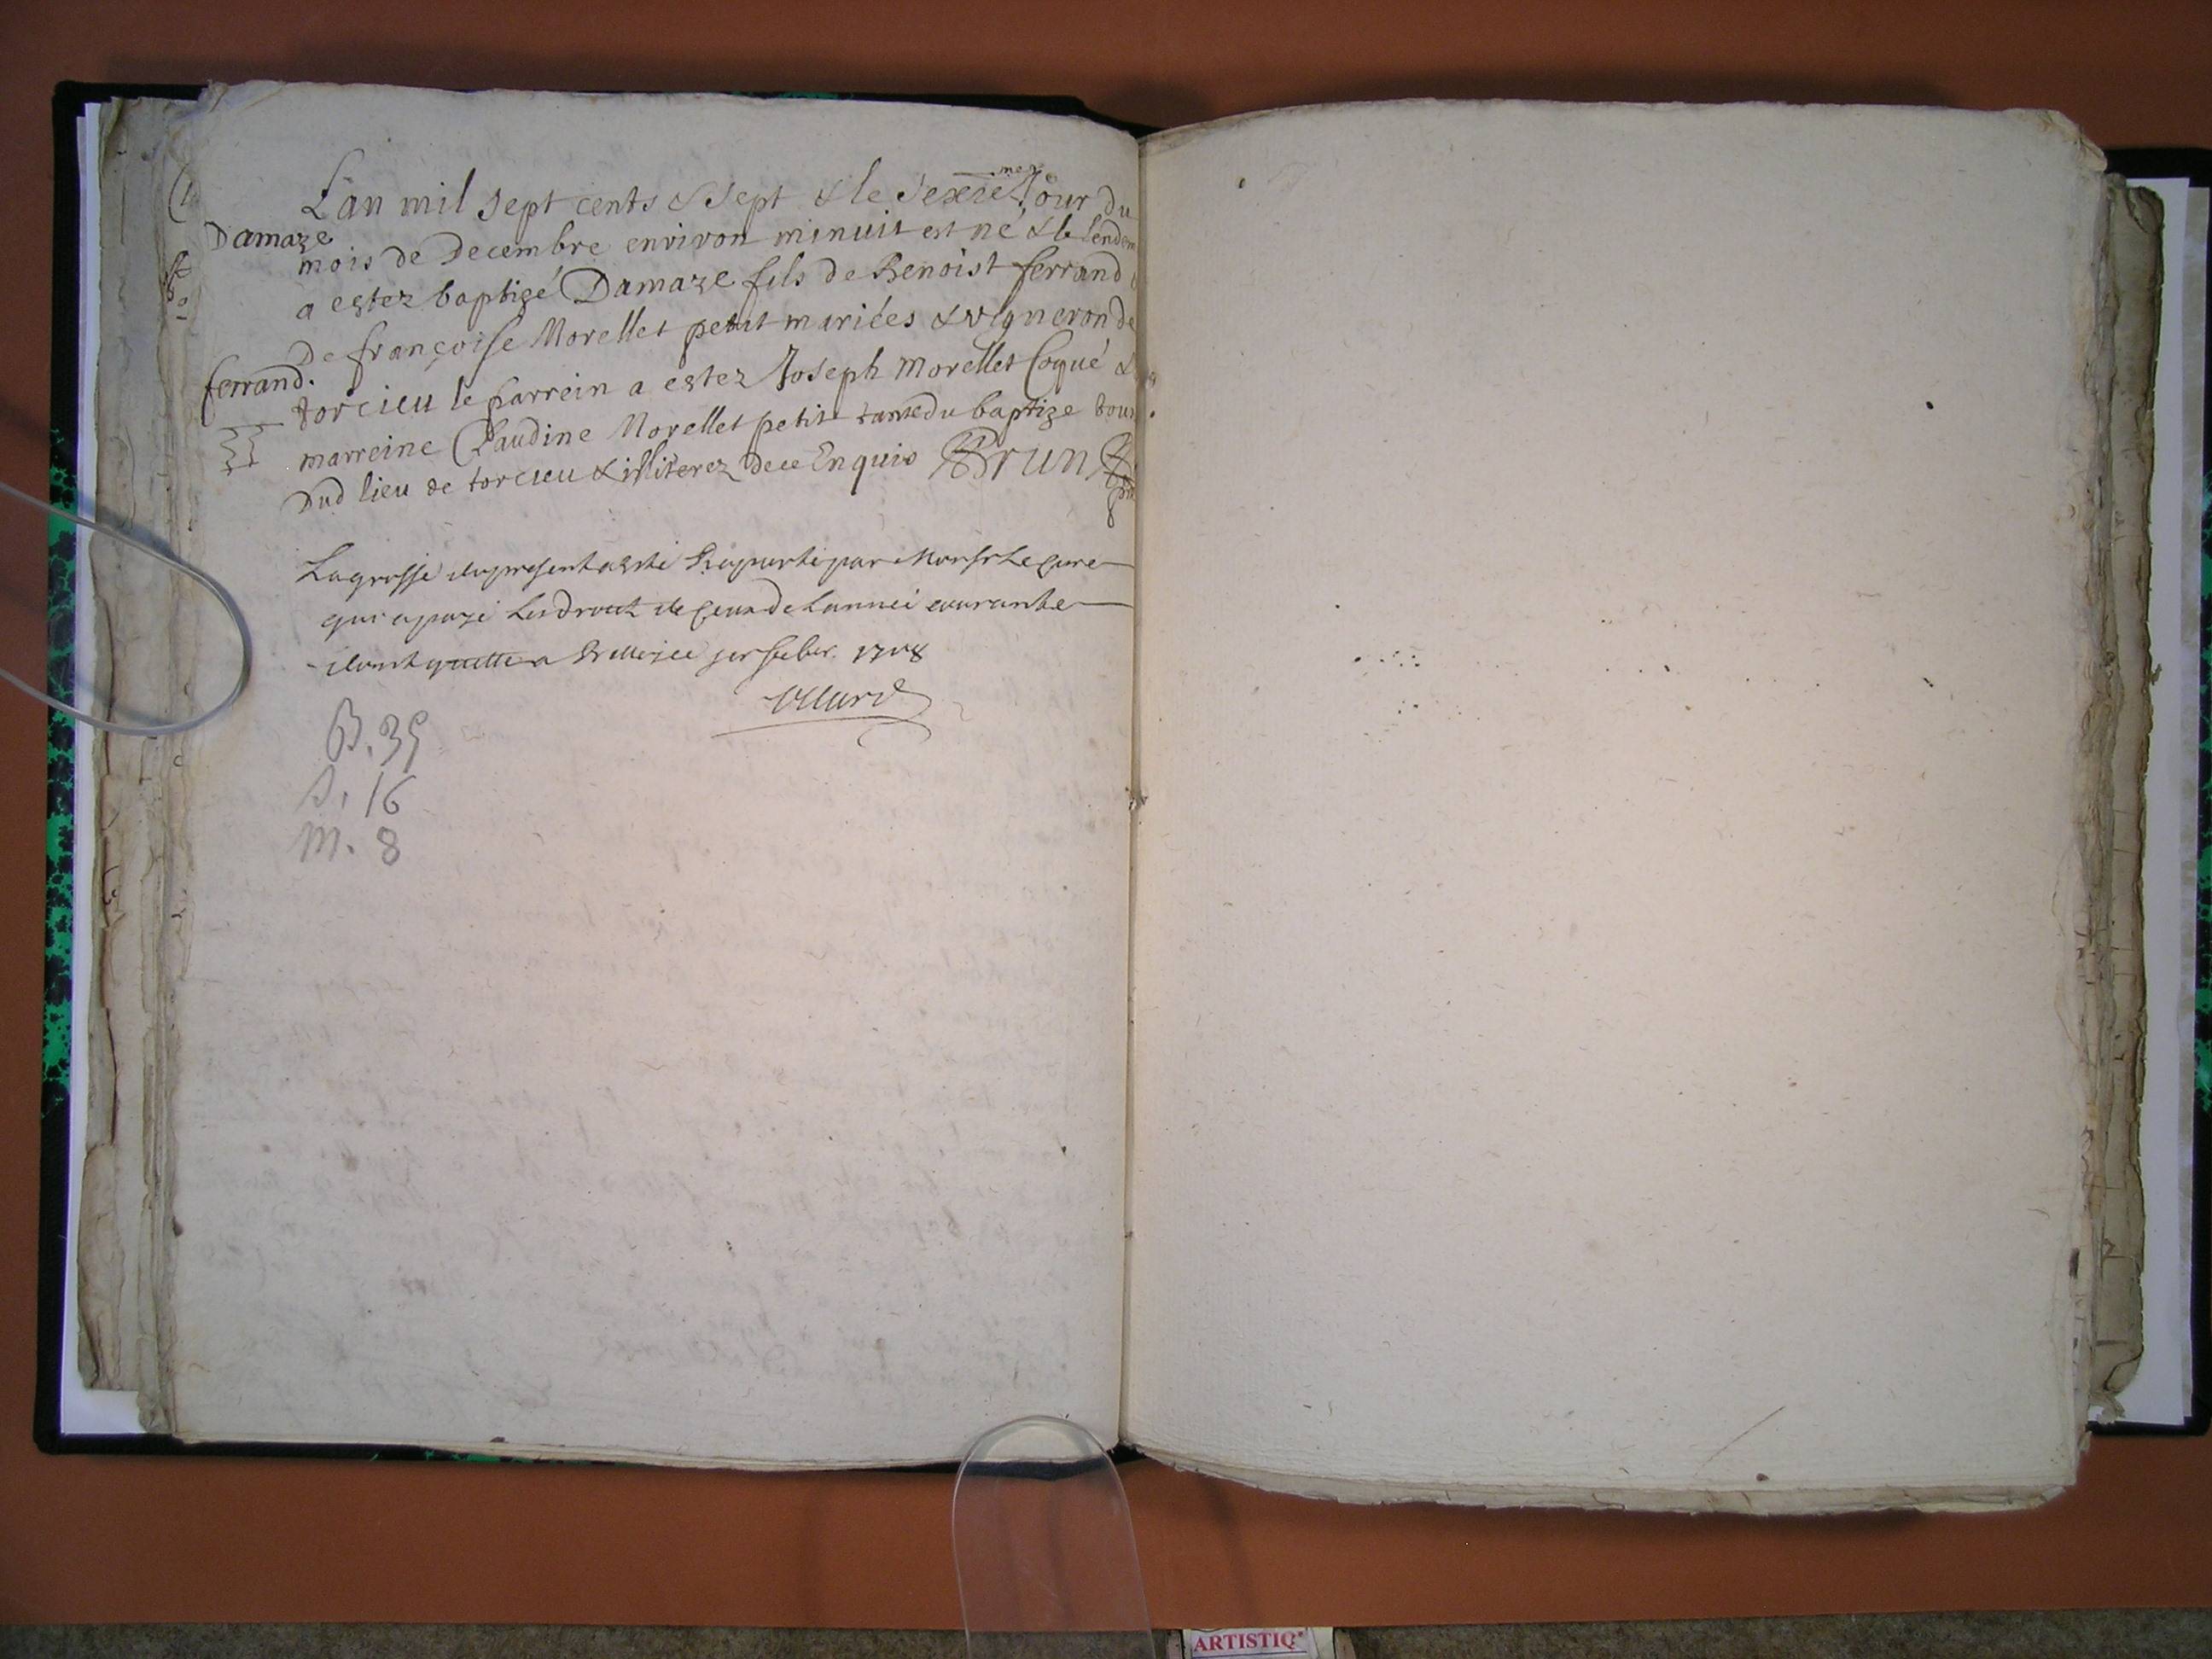 L'an mil sept cents & sept & le Sexziè^mes Jour du
Damaze
mois de Decembre environ minuit est né & le lendem
a estez baptizé Damaze fils de Benoist ferrand
de françoise Morellet petit mariées & vigneron de
ferrand.
torcieu le parrein a estez Joseph Morellet Coqué &
marreine Claudine Morellet petit tante du baptize tous
Dud lieu de torcieu & illiterez de ce Enquis Brun
La grosse du present a esté Raporté par Monsr Le Cure
qui a payé Les droits de ceux de Lannéé courante
dont quitte a Belley ce 1er febvr. 1708
B. 35
S. 16
M. 8
ARTISTIQ